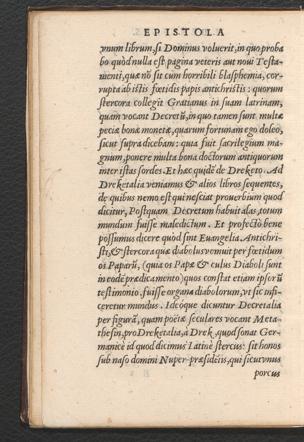 EPISTOLA
vnum librum, si Dominus voluerit, in quo proba
bo quòd nulla est pagina veteris aut noui Testa-
menti, quæ nō sit cum horribili blasphemia, cor-
rupta ab istis fœtidis papis antichristis: quorum
stercora collegit Gratianus in suam latrinam,
quam vocant Decretū, in quo tamen sunt multæ
peciæ bonæ monetæ, quarum fortunam ego doleo,
sicut suprà dicebam: quia fuit sacrilegium ma-
gnum, ponere multa bona doctorum antiquorum
inter istas sordes. Et hæc quidē de Dreketo. Ad
Dreketalia veniamus & alios libros sequentes,
de quibus nemo est qui nesciat prouerbium quod
dicitur, Postquam Decretum habuit alas, totum
mundum fuisse maledictum. Et profectò bene
possumus dicere quòd sint Euangelia Antichri-
sti, & stercora quæ diabolus vomuit per fœtidum
os Paparū, (quia os Papæ & culus Diaboli sunt
in eodē prædicamento) quos constat etiam ipsorū
testimonio, fuisse organa diabolorum, vt sic infi-
cerētur mundus. Ideóque dicuntur Decretalia
per figurā, quam poëtæ seculares vocant Meta-
thesin, pro Dreketalia, à Drek, quod sonat Ger-
manicè id quod dicimus Latinè stercus: sit honos
sub naso domini Nuper-præsidētis, qui sicut vnus
porcus